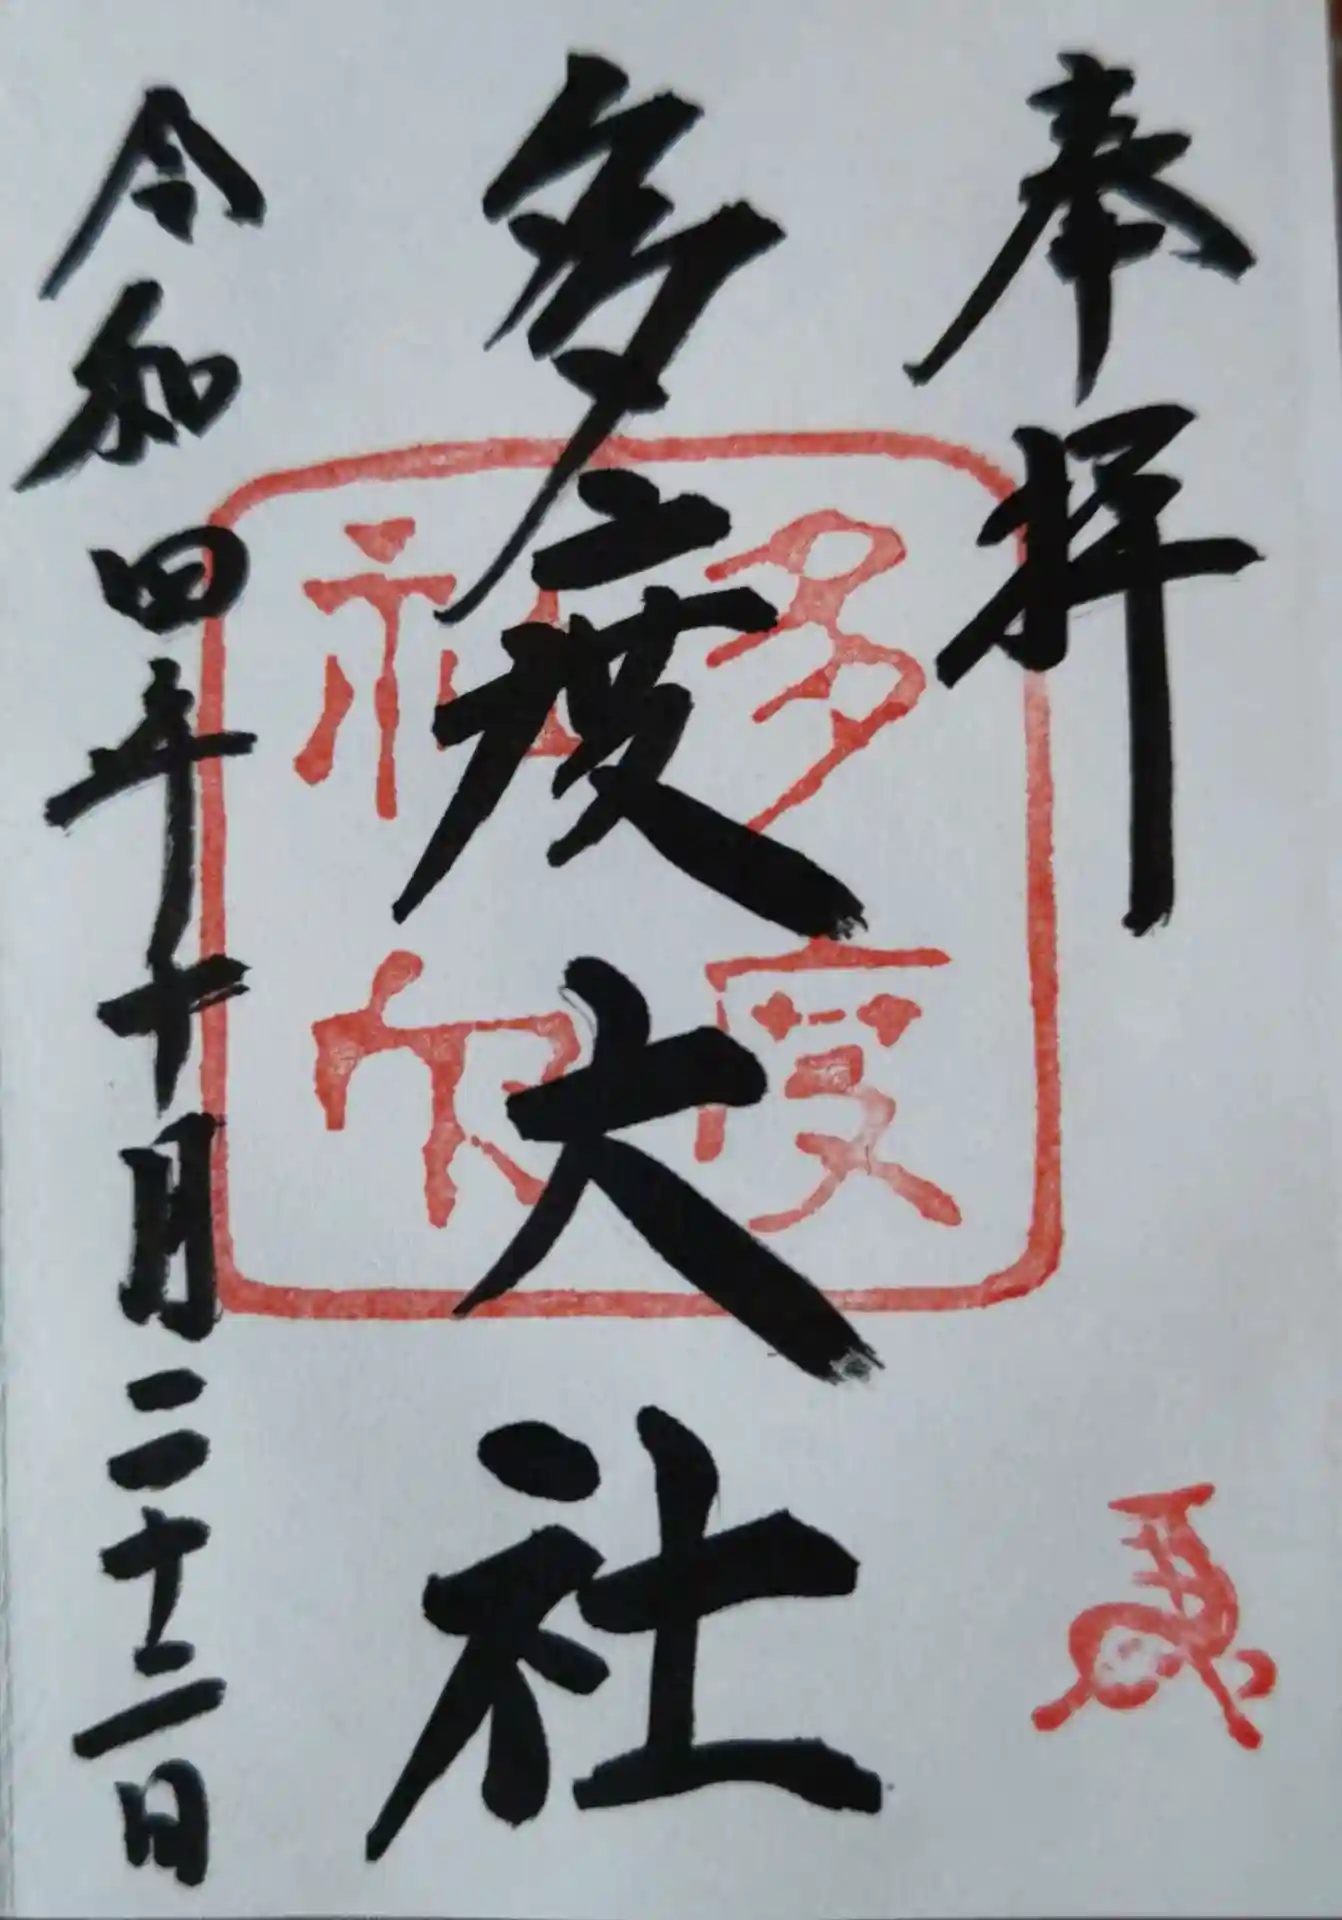 奉拝
多度大社
多度
神社
令和四年十月二十二日